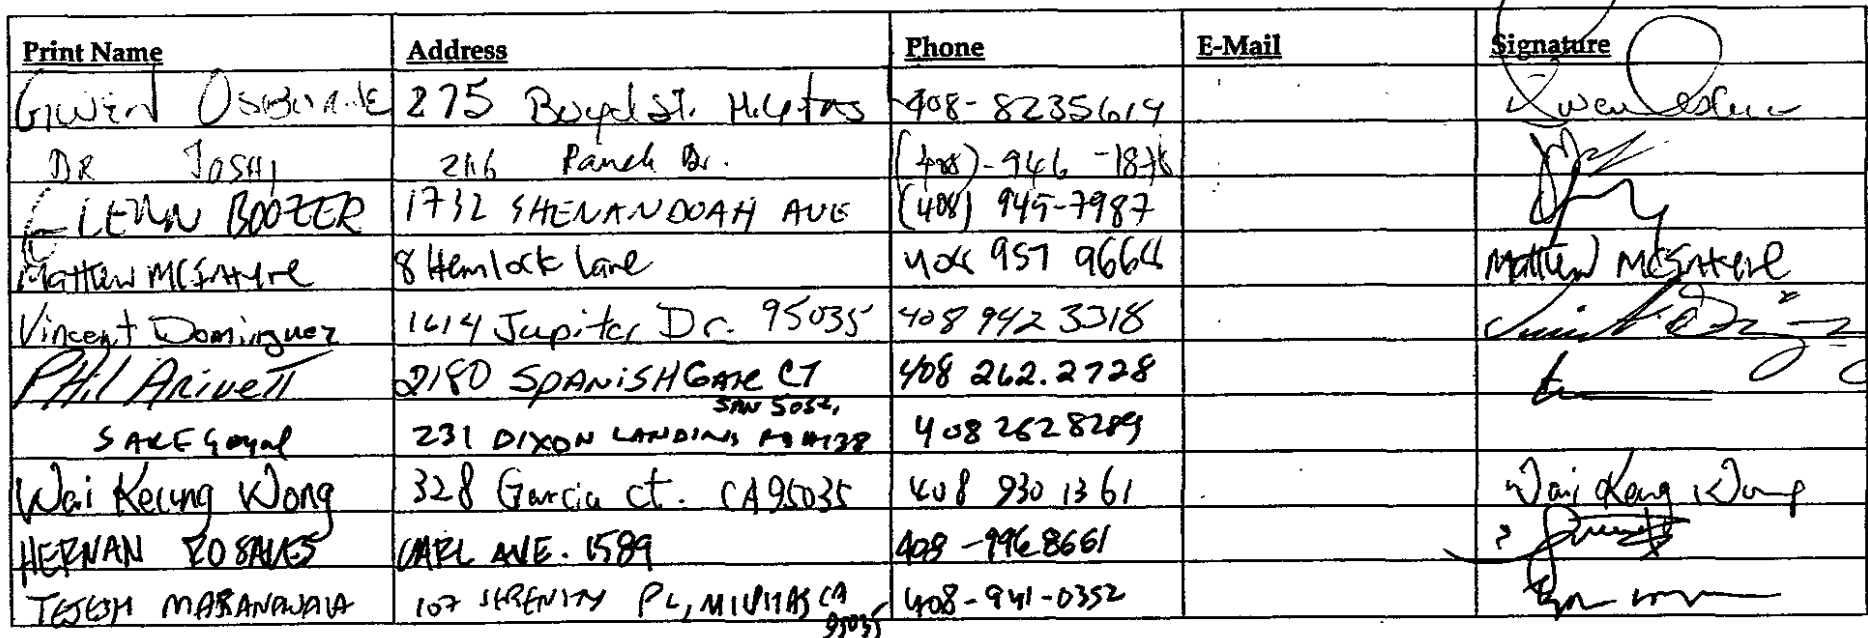 Print Name Address Phone E-Mail Signature
Gwen Osborne 275 Boyd St. Milpitas 408-8235614
DR JOSHI 266 Drive. (408)-946-1876
GLENN BOOZER 1732 SHENANDOAH AVE (408) 945-7987
Matthew McIntyre 8 Hemlock Lane 408 957 9664 Matthew McIntyre
Vincent Dominguez 1614 Jupiter Dr. 95035 408 942 3318
PHil Arivett 2180 SPANiSH GATE CT 408 262.2728
SAN JOSE,
Goyal 231 DIXON LANDING 408 262 8289
Wai Keung Wong 328 Garcia ct. CA 95035 408 930 1361 Wai Keung Wong
HERNAN ROSALES CARL AVE. 1589 408-996 8661
TEJESH 107 SERENITY PL, MILPITAS CA 408-941-0352
95035